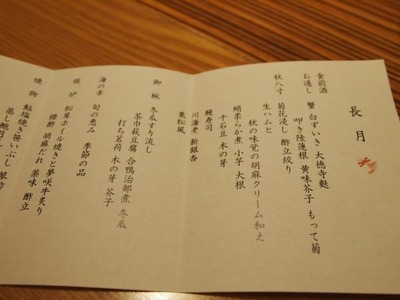 長月
食前酒
お通し 蟹 白ずいき 大徳寺麩 もって菊
叩き陸蓮根 黄味芥子
菊花浸し 酢立絞り
秋八寸 秋の味覚の胡麻クリーム和え
生ハムと
蛸柔らか煮 小芋 大根
干石豆 木の芽
鰻寿司
川海老 新銀杏
栗松風
御椀 冬瓜すり流し
茶巾萩豆腐 合鴨治部煮 冬瓜
打ち茗荷 木の芽 芥子
海の幸 旬の恵み 季節の品
焜炉 松茸ホイル焼きと夢咲牛炙り
橙酢 胡麻だれ 薬味 酢立
焼物 鮎塩焼き笹いぶし
蒸し鮑